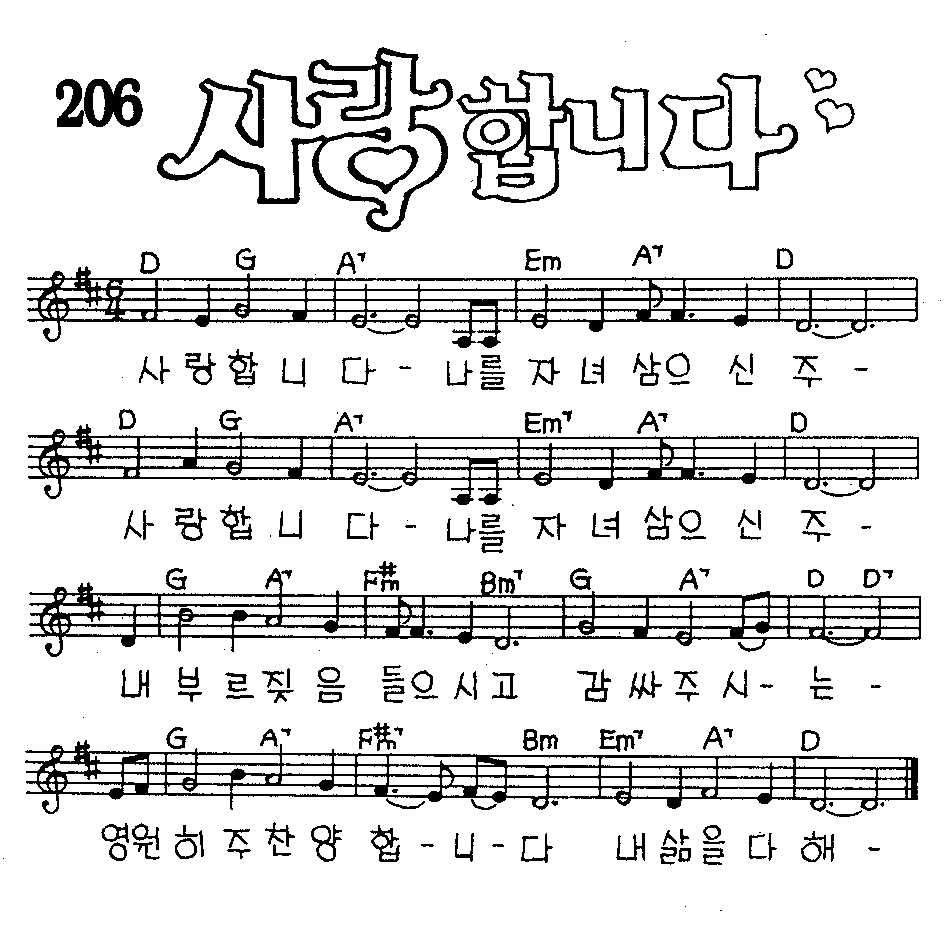 206 사랑합니다
D G A7 Em A7 D
6/4
사 랑 합 니 다 - 나를 자 녀 삼으 신 주 -
D G A7 Em7 A7 D
사 랑 합 니 다 - 나를 자 녀 삼으 신 주 -
G A7 F#m Bm7 G A7 D D7
내 부 르짖 음 들으시고 감 싸주 시- 는 -
G A7 F#m7 Bm Em7 A7 D
영원 히 주 찬 양 합 - 니 - 다 내 삶을 다 해 -